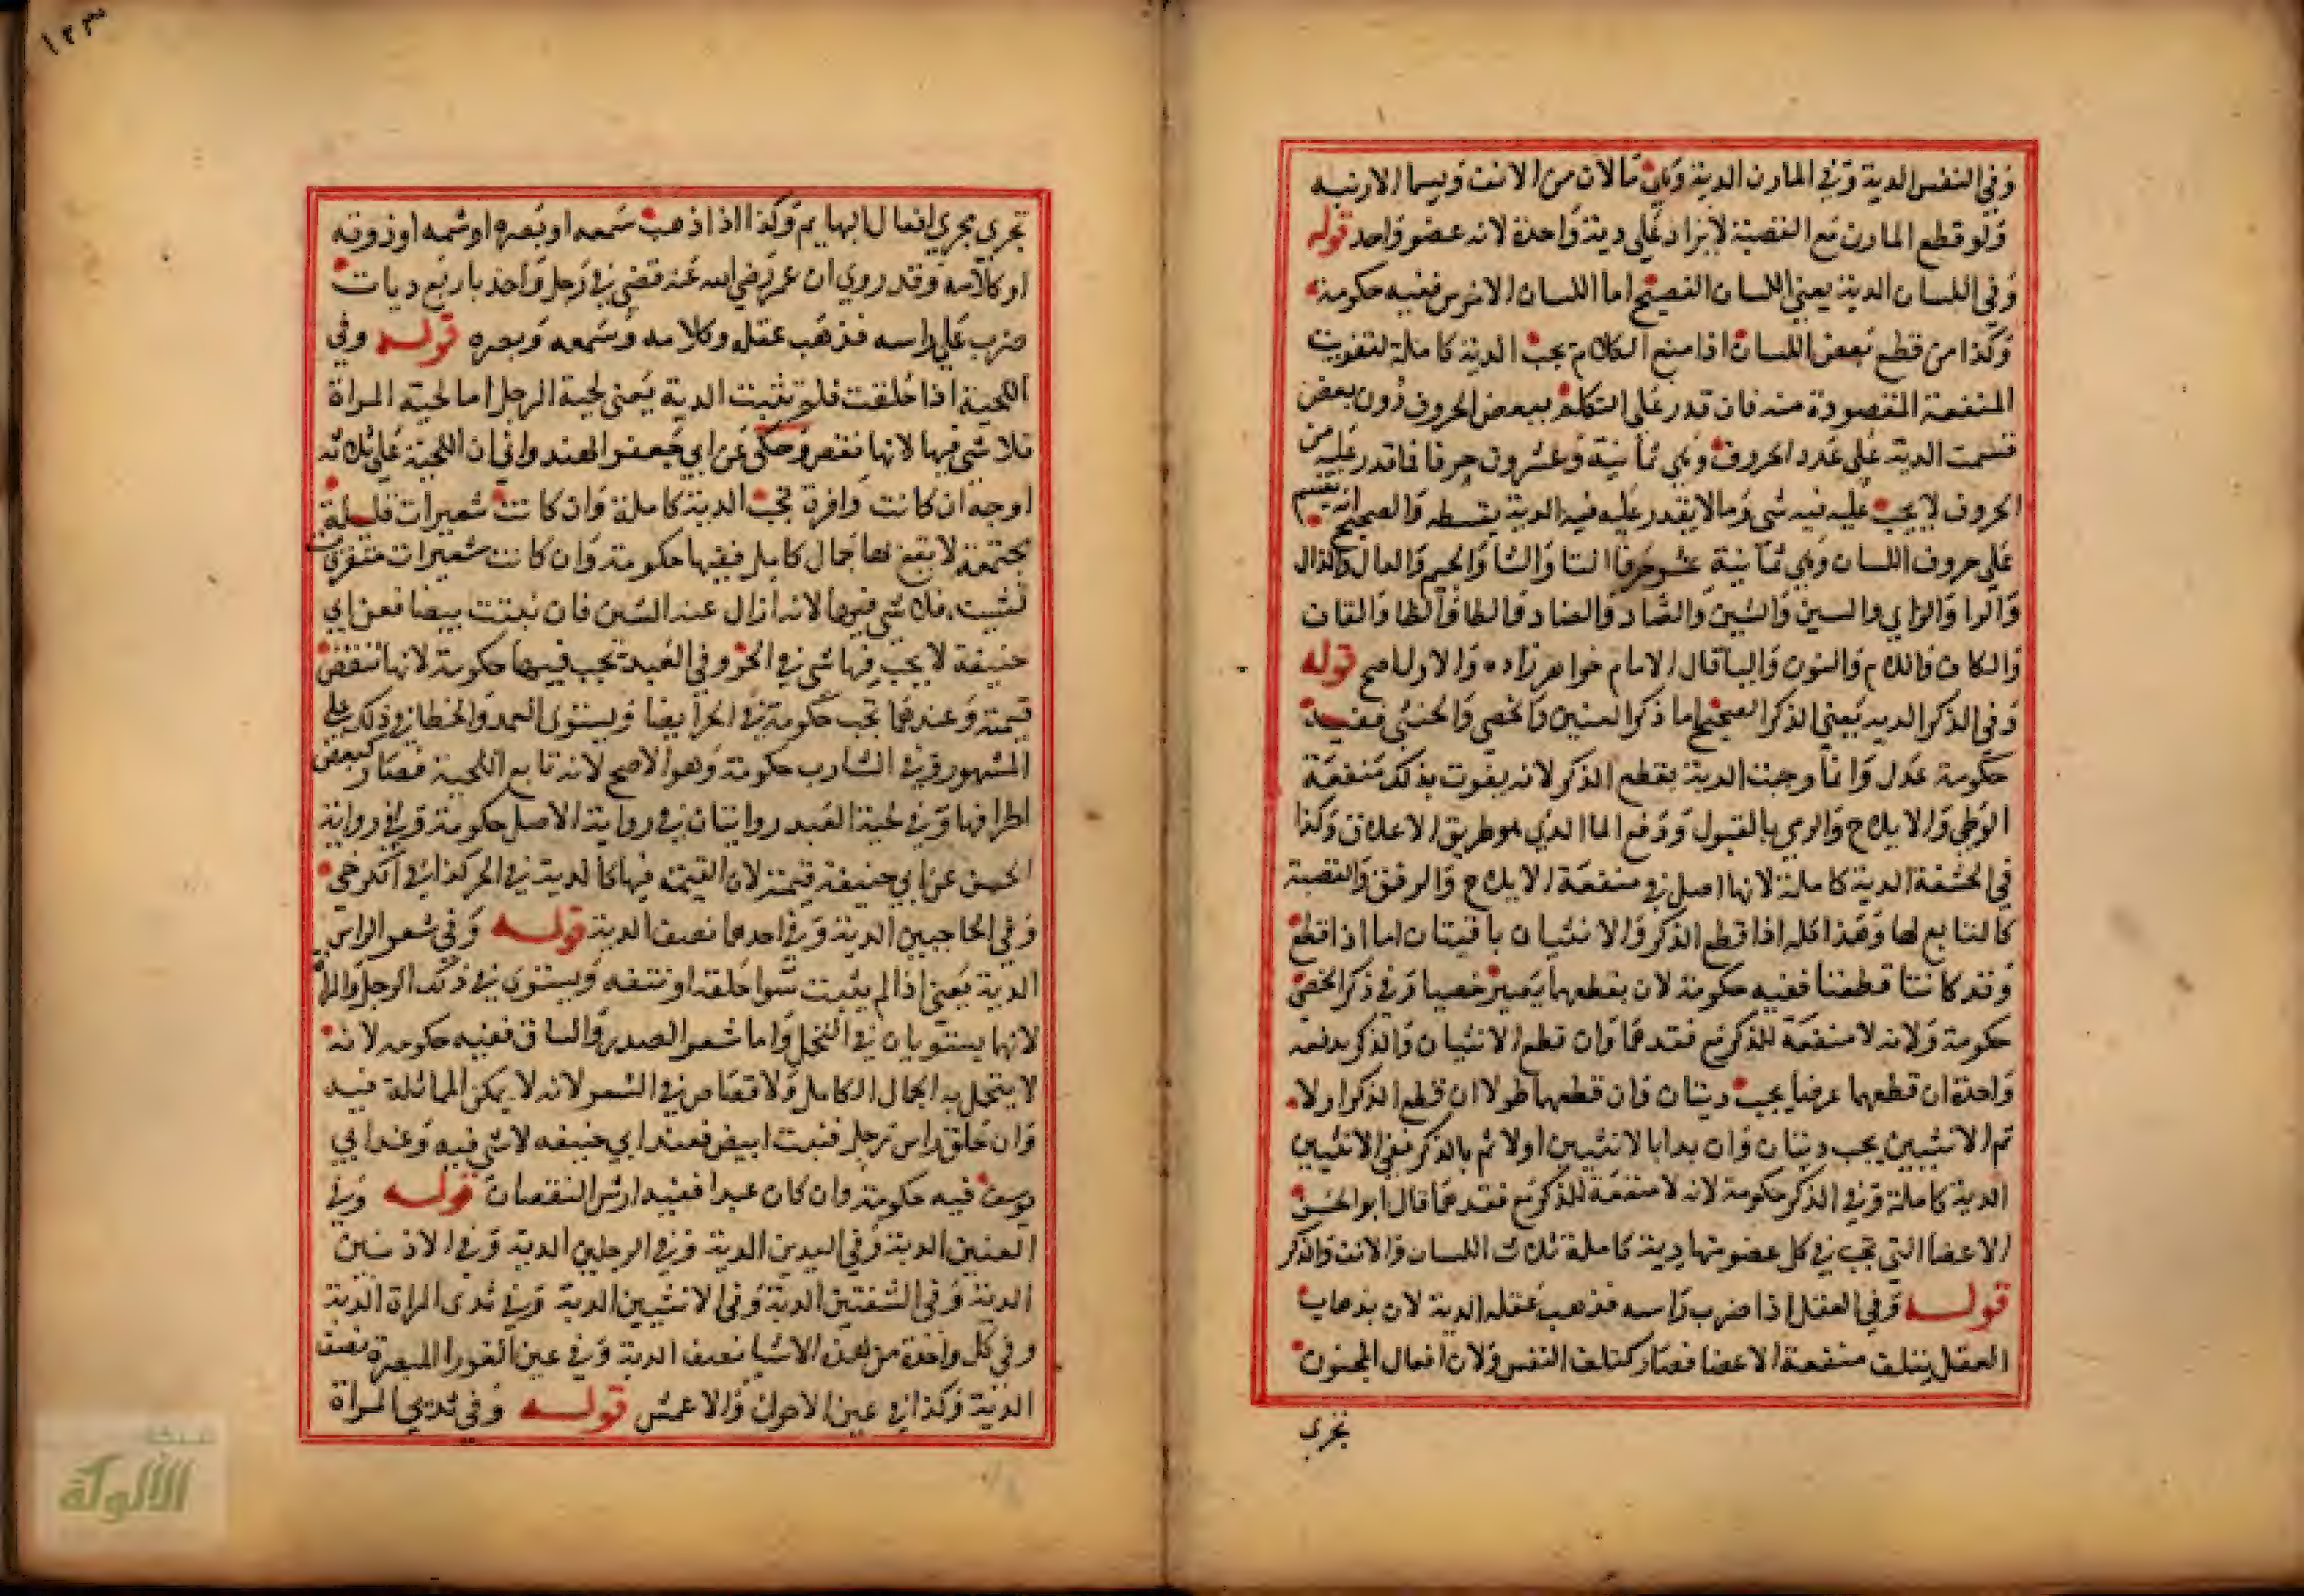 وفي النفس الدية وفي المارن الدية وهي ما لان من الانف ويسما الارنبه
ولو قطع المارن مع القصبة لا يزاد على دية واحدة لانه عضو واحد قوله
وفي اللسان الدية يعني اللسان الفصيح اما اللسان الاخرس ففيه حكومة
وكذا من قطع بعض اللسان اذا منع الكلام يجب الدية كاملة لتفويت
المنفعة المقصودة منه فان قدر على التكلم ببعض الحروف دون بعض
قسمت الدية على عدد الحروف وهي ثمانية وعشرون حرفا فما قدر عليه من
الحروف لا يجب عليه فيه شي وما لا يقدر عليه فيه الدية بقسطه والصحيح انه يقسم
على حروف اللسان وهي ثمانية عشر حرفا التا والثا والجيم والدال والذال
والرا والزاي والسين والشين والصاد والضاد والطا والظا والقاف
والكاف واللام والنون واليا قال الامام خواهر زاده والاول اصح قوله
وفي الذكر الدية يعني الذكر الصحيح اما ذكر العنين والخصي والخنثى ففيه
حكومة عدل وانما وجبت الدية بقطع الذكر لانه يفوت بذلك منفعة
الوطي والايلاج والرمي بالبول ودفع الما الذي هو طريق الاعلاق وكذا
في الحشفة الدية كاملة لانها اصل في منفعة الايلاج والرفق والقصبة
كالتابع لها وهذا كله اذا قطع الذكر والانثيان باقيتان اما اذا قطع
وقد كانتا قطعتا ففيه حكومة لان بقطعهما يصير خصيا وفي ذكر الخصي
حكومة ولانه لا منفعة للذكر مع فقدهما وان قطع الانثيان والذكر بدفعه
واحدة ان قطعهما عرضا يجب ديتان وان قطعهما طولا ان قطع الذكر اولا
ثم الانثيين يجب ديتان وان بدا بالانثيين اولا ثم بالذكر ففي الانثيين
الدية كاملة وفي الذكر حكومة لانه لا منفعة للذكر مع فقدهما قال ابو الحسن
الاعضا التي تجب في كل عضو منها دية كاملة ثلاث اللسان والانف والذكر
قوله وفي العقل اذا ضرب راسه فذهب عقله الدية لان بذهاب
العقل يتلف منفعة الاعضا فصار كتلف النفس ولان افعال المجنون
تجري
١٢٣
تجري مجري افعال البهايم وكذا اذا ذهب سمعه او بصره او شمه او ذوقه
او كلامه وقد روي ان عمر رضي الله عنه قضى في رجل واحد باربع ديات
ضرب على راسه فذهب عقله وكلامه وسمعه وبصره قوله وفي
اللحية اذا حلقت فلم تنبت الدية يعني لحية الرجل اما لحية المراة
فلا شي فيها لانها نقص وحكى عن ابي جعفر الهندواني ان اللحية على ثلاثة
اوجه ان كانت وافرة تجب الدية كاملة وان كانت شعيرات قليلة
مجتمعة لا يقع لها جمال كامل ففيها حكومة وان كانت شعيرات متفرقات
تشينه فلا شي فيها لانه ازال عنه الشين فان نبتت بيضا فعن ابي
حنيفة لا يجب فيها شي في الحر وفي العبد تجب فيها حكومة لانها تنقص
قيمته وعندهما تجب حكومة في الحر ايضا ويستوى العمد والخطا في ذلك على
المشهور وفي الشارب حكومة وهو الاصح لانه تابع للحية فصار كبعض
اطرافها وفي لحية العبد روايتان في رواية الاصل حكومة وفي رواية
الحسن عن ابي حنيفة قيمته لان القيمة فيها كالدية في الحر كذا في الكرخي
وفي الحاجبين الدية وفي احدهما نصف الدية قوله وفي شعر الراس
الدية يعني اذا لم ينبت سوا حلقه او نتفه ويستوي في ذلك الرجل والمراة
لانهما يستويان في التجمل واما شعر الصدر والساق ففيه حكومه لانه
لا يتجمل به الجمال الكامل ولا قصاص في الشعر لانه لا يمكن المماثلة فيه
وان حلق راس رجل فنبت ابيض فعند ابي حنيفه لا شي فيه وعند ابي
يوسف فيه حكومة وان كان عبدا ففيه ارش النقصان قوله وفي
العينين الدية وفي اليدين الدية وفي الرجلين الدية وفي الاذنين
الدية وفي الشفتين الدية وفي الانثيين الدية وفي ثدى المراة الدية
وفي كل واحدة من هذه الاشيا نصف الدية وفي عين العورا المبصرة نصف
الدية وكذا في عين الاحول والاعمش قوله وفي ثديي المراة
شبكة
الألوكة